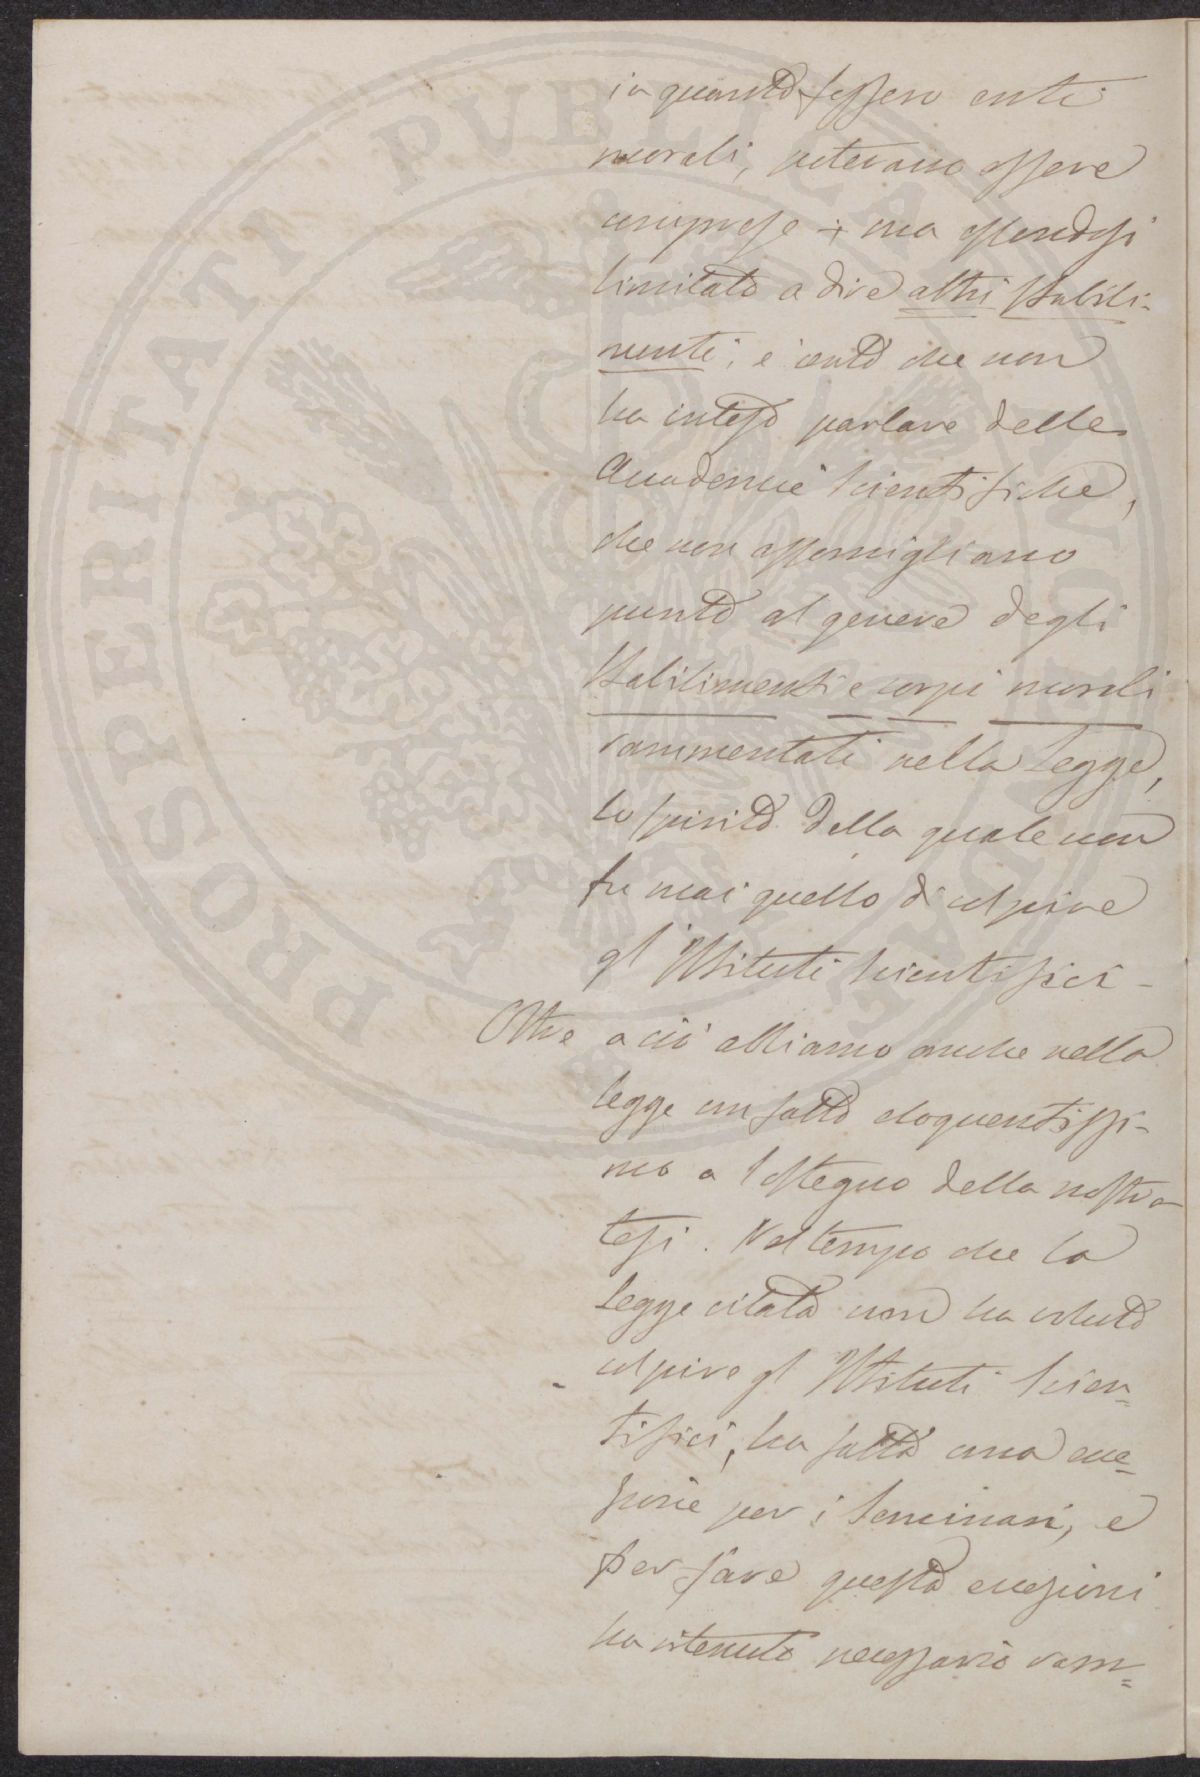 in quanto fossero enti
morali, potevano essere
comprese + ma essendosi
limitato a dire altri stabili-
menti, è certo che non
ha inteso parlare delle
Accademie scientifiche,
che non assomigliano
punto al genere degli
stabilimenti e corpi morali
rammentati nella Legge,
lo spirito della quale non
fu mai quello di colpire
gl'Istituti scientifici -
Oltre a ciò abbiamo anche nella
legge un fatto eloquentissi-
mo a sostegno della nostra
tesi. Nel tempo che la
Legge citata non ha voluto
colpire gl'Istituti scien=
tifici, ha fatto una ecce=
zione per i Seminari, e
per fare questa eccezioni
ha ritenuto necessario ram=
PROSPERITATI PUBLICAE